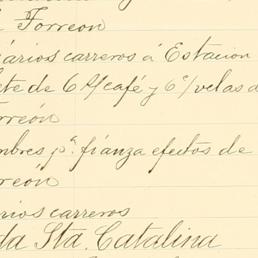 Torreon
arios carreros á Estacion
te de 6 @/ café y 6 c/ velas d
rreón
mbres pa. fianza efectos de
reón
rios carreros
da Sta. Catalina